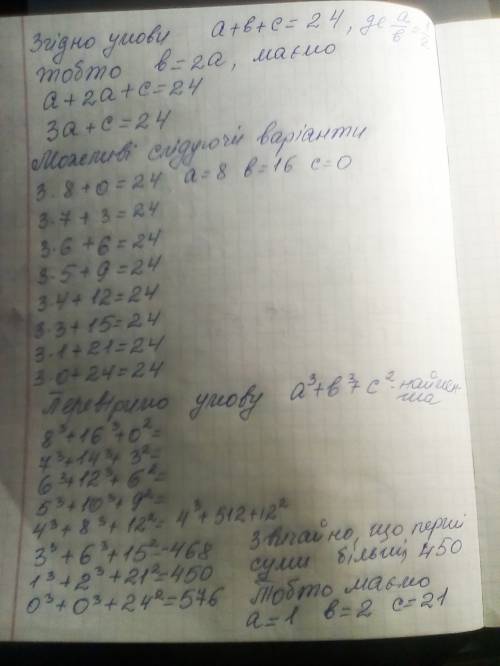 Згідно умови a+в+c=24, де a/в=1/2
тобто в=2a, маємо
a+2a+c=24
3a+c=24
Можливі слідуючи варіанти
3·8+0=24 a=8 в=16 c=0
3·7+3=24
3·6+6=24
3·5+9=24
3·4+12=24
3·3+15=24
3·1+21=24
3·0+24=24
Перевіримо умову a³+в³+c² - наймен-
ша
8³+16³+0²=
7³+14³+3²=
6³+12³+6²=
5³+10³+9²=
4³+8³+12²=4³+512+12²
3³+6³+15²=468
1³+2³+21²=450
0³+0³+24²=576
Звичайно, що перші
суми більші, 450
Тобто маємо
a=1 в=2 c=21